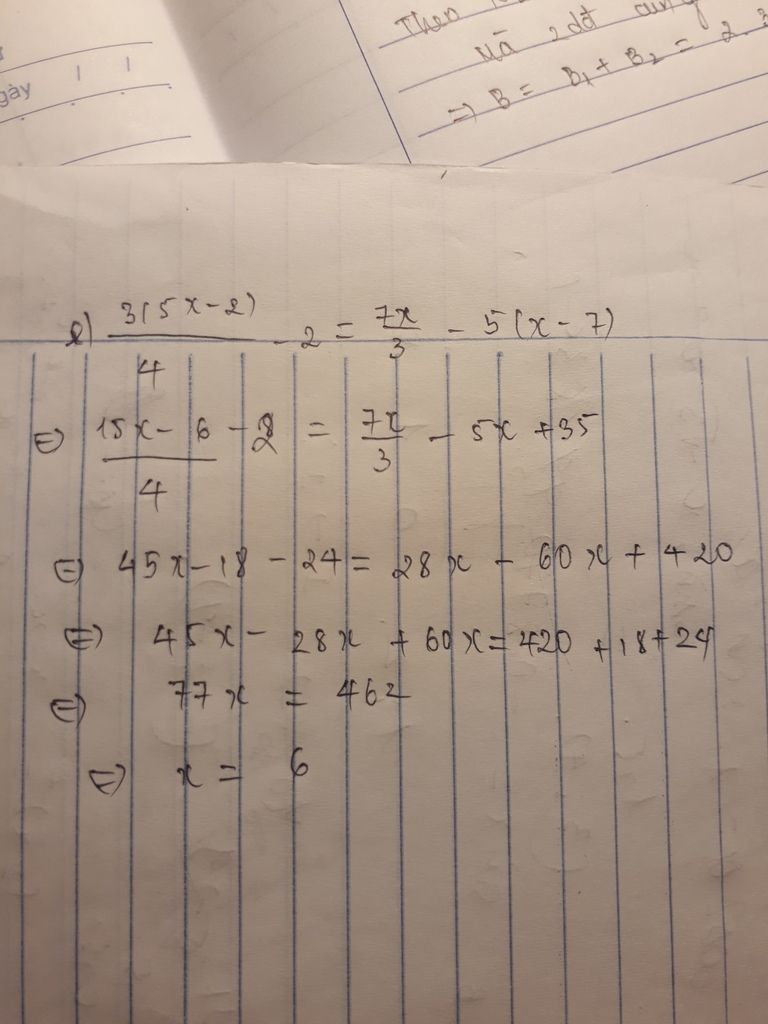 gày
Theo
Mà 2đt cùng
=> B = B₁ + B₂ = 2.3
e) 3(5x-2)/4 - 2 = 7x/3 - 5(x-7)
⇔ (15x-6)/4 - 2 = 7x/3 - 5x + 35
⇔ 45x - 18 - 24 = 28x - 60x + 420
⇔ 45x - 28x + 60x = 420 + 18 + 24
⇔ 77x = 462
⇔ x = 6